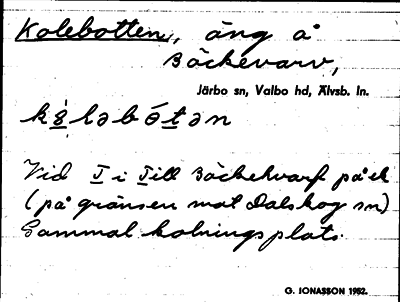 Kolebotten, äng å
Bäckevarv,
Järbo sn, Valbo hd, Älvsb. ln.
Vid I i Till Bäckehvarf på ek
(på gränsen mot Dalskog sn)
Gammal kolningsplats.
G. JONASSON 1952.